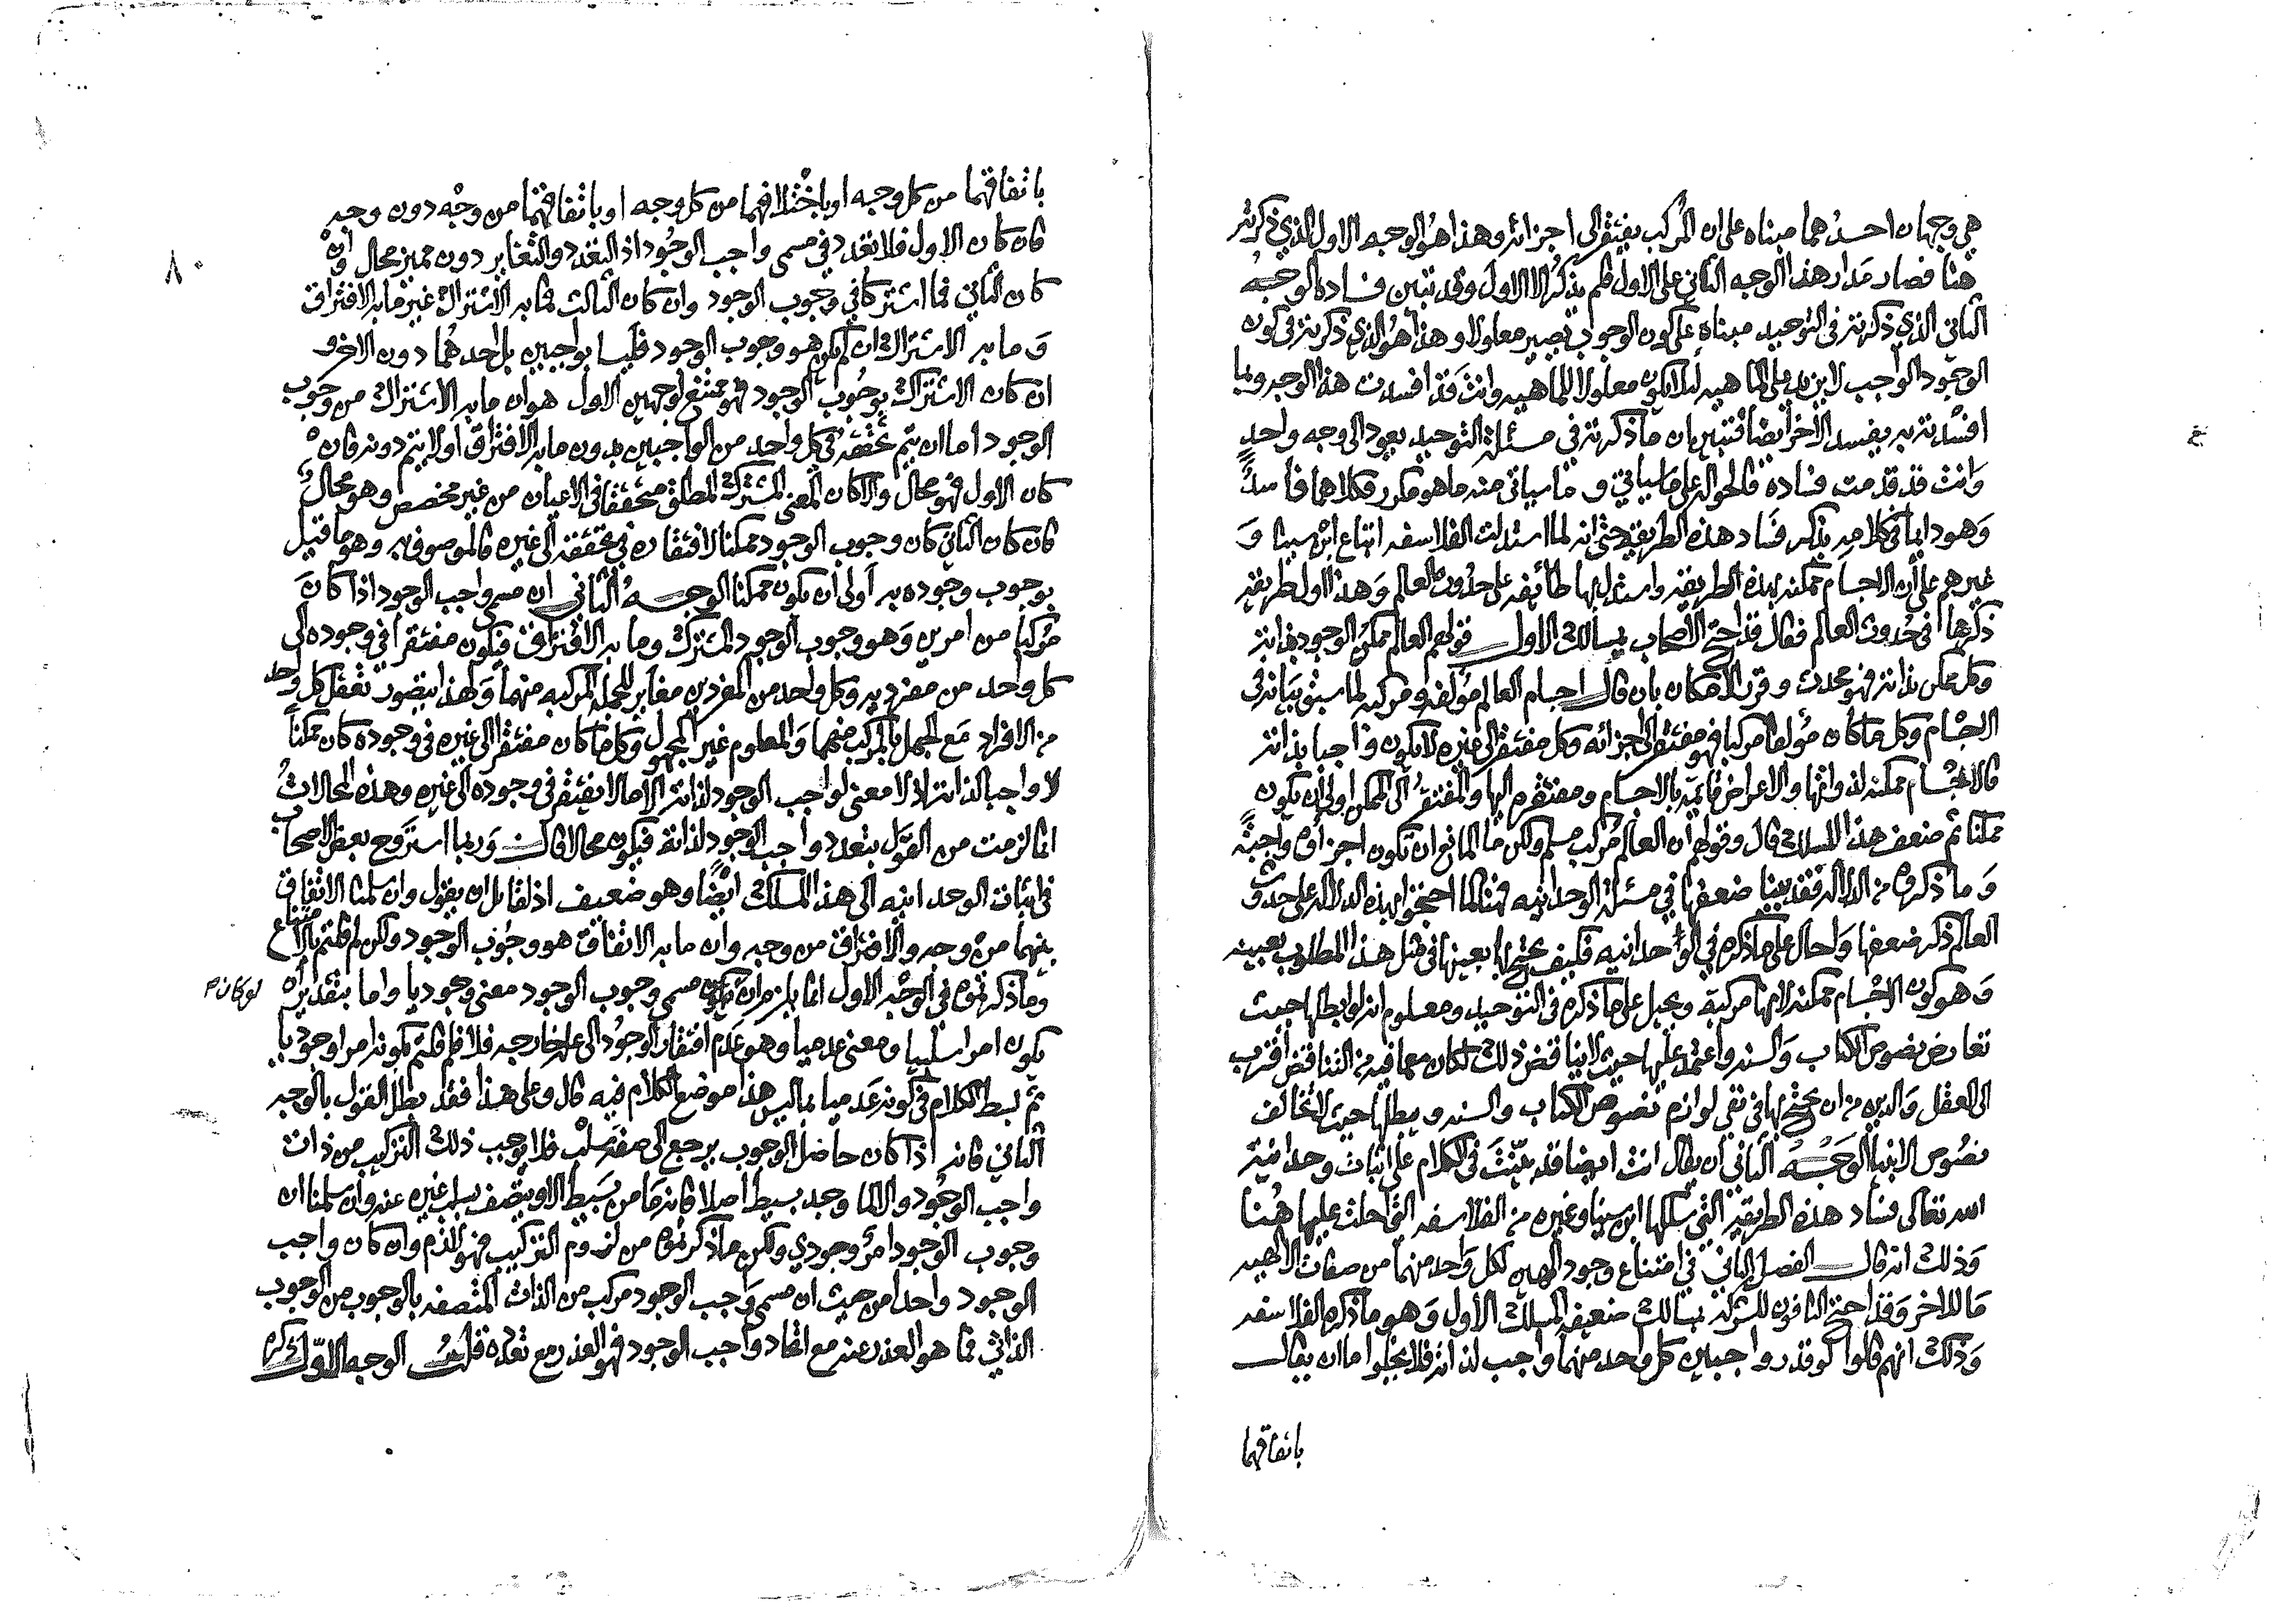 هي وجهان احدهما مبناه على ان المركب يفتقر الى اجزائه وهذا هو الوجه الاول الذي ذكرته
هنا فصار مدار هذا الوجه الثاني على الاول فلم يذكر الا الاول وقد تبين فساده الوجه
الثاني الذي ذكرته في التوحيد مبناه على كون الوجود يصير معلولا وهذا هو الذي ذكرته في كون
الوجود الواجب لا يزيد على الماهيه لئلا يكون معلولا للماهيه وانت قد افسدت هذا الوجه وبما
افسدته به يفسد الآخر ايضا فتبين ان ما ذكرته في مسئلة التوحيد يعود الى وجه واحد
وانت قد قدمت فساده فالحواله على ما سياتي و ما سياتي منه ما هو مكرر فكلاهما فاسد
وهو دايما في كلامه يذكر فساد هذه الطريقه حتى انه لما استدلت الفلاسفه اتباع ابن سينا و
غيرهم على أن الاجسام ممكنه بهذه الطريقه واستدل بها طائفه على حدوث العالم وهذا اول طريقه
ذكرها في حدوث العالم فقال قد احتج الاصحاب بمسالك الاول قولهم العالم ممكن الوجود بذاته
وكل ممكن بذاته فهو محدث وقرر الامكان بان قال اجسام العالم مؤلفه ومركبه لما سبق بيانه في
الاجسام وكل ما كان مؤلفا مركبا فهو مفتقر الى اجزائه وكل مفتقر الى غيره لا يكون واجبا بذاته
فالاجسام ممكنه لذواتها والاعراض قائمه بالاجسام ومفتقره اليها والمفتقر الى الممكن اولى ان يكون
ممكنا ثم ضعف هذا المسلك قال وقولهم أن العالم مركب مسلم ولكن ما المانع ان تكون اجزاؤه واجبة
وما ذكروه من الدلاله فقد بينا ضعفها في مسئلة الوحدانيه فهنا لما احتجوا بهذه الدلاله على حدوث
العالم ذكر ضعفها واحال على ما ذكره في الوحدانيه فكيف يحتج بها بعينها في مثل هذا المطلوب بعينه
وهو كون الاجسام ممكنه لانها مركبة ويحيل على ما ذكره في التوحيد ومعلوم انه لو ابطلها حيث
تعارض نصوص الكتاب والسنه واعتمد عليها حيث لا يناقض ذلك لكان مع ما فيه من التناقض اقرب
الى العقل والدين من ان يحتج بها في نفي لوازم نصوص الكتاب والسنه ويبطلها حيث لا تخالف
نصوص الانبيا الوجه الثاني أن يقال انت ايضا قد بينت في الكلام على اثبات وحدانية
الله تعالى فساد هذه الطريقه التي سلكها ابن سينا وغيره من الفلاسفه التي احلت عليها هنا
وذلك انه قال الفصل الثاني في امتناع وجود الهين لكل واحد منهما من صفات الالهيه
ما للاخر وقد احتج النافون للشركة بمسالك ضعيفه المسلك الأول وهو ما ذكره الفلاسفه
وذلك انهم قالوا لو قدر واجبين كل واحد منهما واجب لذاته فلا يخلوا اما ان يقال
باتفاقهما
٨٠
باتفاقهما من كل وجه او باختلافهما من كل وجه او باتفاقهما من وجه دون وجه
فان كان الاول فلا تعدد في مسمى واجب الوجود اذ التعدد والتغاير دون مميز محال وان
كان الثاني فما اشتركا في وجوب الوجود وان كان الثالث فما به الاشتراك غير ما به الافتراق
وما به الاشتراك ان لم يكن هو وجوب الوجود فليسا بواجبين بل احدهما دون الاخر و
ان كان الاشتراك بوجوب الوجود فهو ممتنع لوجهين الاول هو ان ما به الاشتراك من وجوب
الوجود اما ان يتم تحققه في كل واحد من الواجبين بدون ما به الافتراق او لا يتم دونه فان
كان الاول فهو محال والا كان المعنى المشترك المطلق متحققا في الاعيان من غير مخصص وهو محال
فان كان الثاني كان وجوب الوجود ممكنا لافتقاره في تحققه الى غيره فالموصوف به وهو ما قيل
بوجوب وجوده به أولى ان يكون ممكنا الوجه الثاني ان مسمى واجب الوجود اذا كان
مركبا من امرين وهو وجوب الوجود المشترك وما به الافتراق فيكون مفتقرا في وجوده الى
كل واحد من مفرديه وكل واحد من المفردين مغاير للجمله المركبه منهما ولهذا يتصور تعقل كل واحد
من الافراد مع الجهل بالمركب منهما والمعلوم غير المجهول وكل ما كان مفتقرا الى غيره في وجوده كان ممكنا
لا واجبا لذاته اذ لا معنى لواجب الوجود لذاته الا ما لا يفتقر في وجوده الى غيره وهذه المحالات
انما لزمت من القول بتعدد واجب الوجود لذاته فيكون محالا قال وربما استروح بعض الاصحاب
في اثبات الوحدانيه الى هذا المسلك ايضا وهو ضعيف اذ لقائل ان يقول وان سلمنا الاتفاق
بينهما من وجه والافتراق من وجه وان ما به الاتفاق هو وجوب الوجود ولكن لم قلتم بالامتناع
وما ذكرتموه في الوجه الاول انما يلزم ان لو كان مسمى وجوب الوجود معنى وجوديا واما بتقدير ان
لو كان م
يكون امرا سلبيا ومعنى عدميا وهو عدم افتقار الوجود الى علة خارجه فلا فلم قلتم بكونه امرا وجوديا
ثم بسط الكلام في كونه عدميا بما ليس هذا موضع الكلام فيه قال وعلى هذا فقد بطل القول بالوجه
الثاني فانه اذا كان حاصل الوجوب يرجع الى صفة سلب فلا يوجب ذلك التركيب من ذات
واجب الوجود والا لما وجد بسيط اصلا فانه ما من بسيط الا ويتصف بسلب غيره عنه وان سلمنا ان
وجوب الوجود امر وجودي ولكن ما ذكرتموه من لزوم التركيب فهو لازم وان كان واجب
الوجود واحدا من حيث ان مسمى واجب الوجود مركب من الذات المتصفه بالوجوب من الوجوب
الذاتي فما هو العذر عنه مع اتحاد واجب الوجود فهو العذر مع تعدده قلت الوجه الاول ذكره